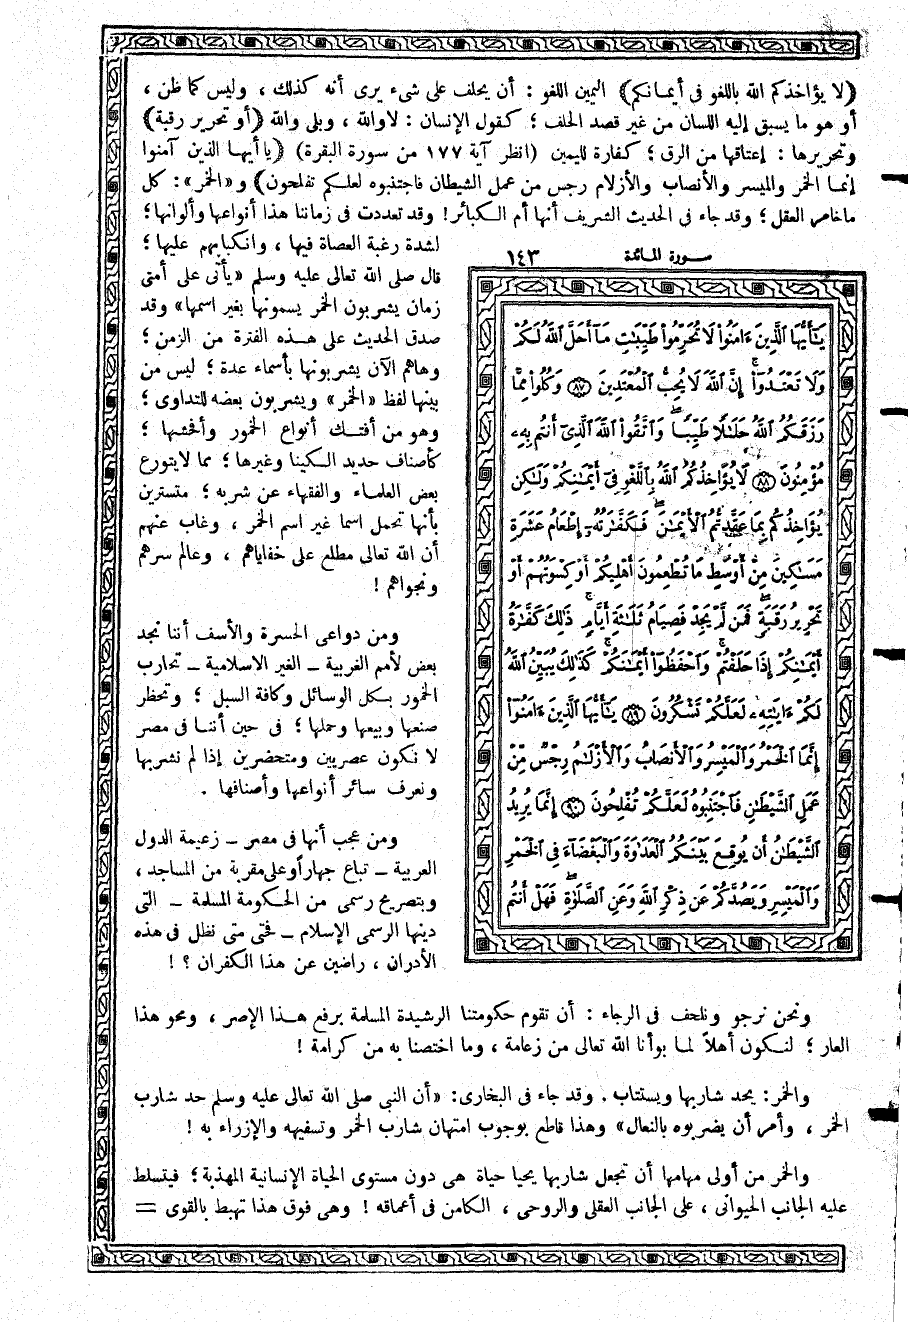 (لا يؤاخذكم الله باللغو فى أيمانكم) اليمين اللغو : أن يحلف على شىء يرى أنه كذلك ، وليس كما ظن ،
أو هو ما يسبق إليه اللسان من غير قصد الحلف ؛ كقول الإنسان : لا والله ، وبلى والله (أو تحرير رقبة)
وتحريرها : إعتاقها من الرق ؛ كفارة لليمين (انظر آية ١٧٧ من سورة البقرة) (يا أيها الذين آمنوا
إنما الخمر والميسر والأنصاب والأزلام رجس من عمل الشيطان فاجتنبوه لعلكم تفلحون) و«الخمر»: كل
ما خامر العقل ؛ وقد جاء فى الحديث الشريف أنها أم الكبائر! وقد تعددت فى زماننا هذا أنواعها وألوانها؛
لشدة رغبة العصاة فيها ، وانكبابهم عليها ؛
قال صلى الله تعالى عليه وسلم «يأتى على أمتى
زمان يشربون الخمر يسمونها بغير اسمها» وقد
صدق الحديث على هذه الفترة من الزمن ؛
وهاهم الآن يشربونها بأسماء عدة ؛ ليس من
بينها لفظ «الخمر» ويشربون بعضه للتداوى ؛
وهو من أفتك أنواع الخمور وأفحشها ؛
كأصناف حديد الكينا وغيرها ؛ مما لا يتورع
بعض العلماء والفقهاء عن شربه ؛ متسترين
بأنها تحمل اسما غير اسم الخمر ، وغاب عنهم
أن الله تعالى مطلع على خفاياهم ، وعالم سرهم
ونجواهم !
ومن دواعى الحسرة والأسف أننا نجد
بعض لأمم الغربية ــ الغير الاسلامية ــ تحارب
الخمور بكل الوسائل وكافة السبل ؛ وتحظر
صنعها وبيعها وحملها ؛ فى حين أننا فى مصر
لا نكون عصريين ومتحضرين إذا لم نشربها
ونعرف سائر أنواعها وأصنافها .
ومن عجب أنها فى مصر ــ زعيمة الدول
العربية ــ تباع جهاراً وعلى مقربة من المساجد ،
وبتصريح رسمى من الحكومة المسلمة ــ التى
دينها الرسمى الإسلام ــ فحتى متى نظل فى هذه
الأدران ، راضين عن هذا الكفران ؟ !
سورة المائدة ١٤٣
يَٰٓأَيُّهَا ٱلَّذِينَ ءَامَنُوا۟ لَا تُحَرِّمُوا۟ طَيِّبَٰتِ مَآ أَحَلَّ ٱللَّهُ لَكُمْ
وَلَا تَعْتَدُوٓا۟ۚ إِنَّ ٱللَّهَ لَا يُحِبُّ ٱلْمُعْتَدِينَ ٨٧ وَكُلُوا۟ مِمَّا
رَزَقَكُمُ ٱللَّهُ حَلَٰلًا طَيِّبًاۖ وَٱتَّقُوا۟ ٱللَّهَ ٱلَّذِىٓ أَنتُم بِهِۦ
مُؤْمِنُونَ ٨٨ لَا يُؤَاخِذُكُمُ ٱللَّهُ بِٱللَّغْوِ فِىٓ أَيْمَٰنِكُمْ وَلَٰكِن
يُؤَاخِذُكُم بِمَا عَقَّدتُّمُ ٱلْأَيْمَٰنَۖ فَكَفَّٰرَتُهُۥٓ إِطْعَامُ عَشَرَةِ
مَسَٰكِينَ مِنْ أَوْسَطِ مَا تُطْعِمُونَ أَهْلِيكُمْ أَوْ كِسْوَتُهُمْ أَوْ
تَحْرِيرُ رَقَبَةٍۖ فَمَن لَّمْ يَجِدْ فَصِيَامُ ثَلَٰثَةِ أَيَّامٍۚ ذَٰلِكَ كَفَّٰرَةُ
أَيْمَٰنِكُمْ إِذَا حَلَفْتُمْۚ وَٱحْفَظُوٓا۟ أَيْمَٰنَكُمْۚ كَذَٰلِكَ يُبَيِّنُ ٱللَّهُ
لَكُمْ ءَايَٰتِهِۦ لَعَلَّكُمْ تَشْكُرُونَ ٨٩ يَٰٓأَيُّهَا ٱلَّذِينَ ءَامَنُوٓا۟
إِنَّمَا ٱلْخَمْرُ وَٱلْمَيْسِرُ وَٱلْأَنصَابُ وَٱلْأَزْلَٰمُ رِجْسٌ مِّنْ
عَمَلِ ٱلشَّيْطَٰنِ فَٱجْتَنِبُوهُ لَعَلَّكُمْ تُفْلِحُونَ ٩٠ إِنَّمَا يُرِيدُ
ٱلشَّيْطَٰنُ أَن يُوقِعَ بَيْنَكُمُ ٱلْعَدَٰوَةَ وَٱلْبَغْضَآءَ فِى ٱلْخَمْرِ
وَٱلْمَيْسِرِ وَيَصُدَّكُمْ عَن ذِكْرِ ٱللَّهِ وَعَنِ ٱلصَّلَوٰةِۖ فَهَلْ أَنتُم
ونحن نرجو ونلحف فى الرجاء : أن تقوم حكومتنا الرشيدة المسلمة برفع هذا الإصر ، ومحو هذا
العار ؛ لنكون أهلاً لما بوأنا الله تعالى من زعامة ، وما اختصنا به من كرامة !
والخمر: يحد شاربها ويستتاب . وقد جاء فى البخارى: «أن النبى صلى الله تعالى عليه وسلم حد شارب
الخمر ، وأمر أن يضربوه بالنعال» وهذا قاطع بوجوب امتهان شارب الخمر وتسفيهه والإزراء به !
والخمر من أولى مهامها أن تجعل شاربها يحيا حياة هى دون مستوى الحياة الإنسانية المهذبة ؛ فيتسلط
عليه الجانب الحيوانى ، على الجانب العقلى والروحى ، الكامن فى أعماقه ! وهى فوق هذا تهبط بالقوى =